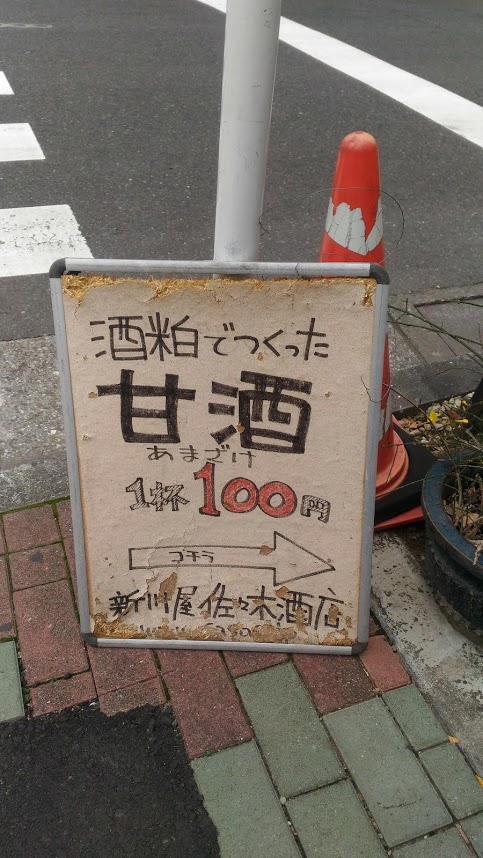 酒粕でつくった
甘酒
あまざけ
1杯100円
コチラ
新川屋佐々木酒店